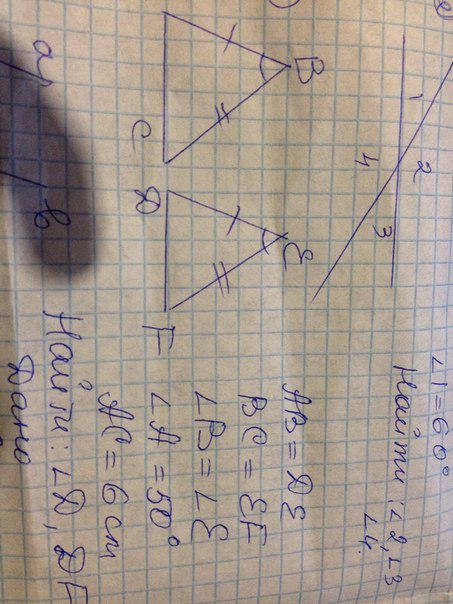 1
2
3
4
∠1=60°
Найти: ∠2, ∠3
∠4.
B
C
E
D
F
AB = DE
BC = EF
∠B = ∠E
∠A = 50°
AC = 6 cm
Найти: ∠D, DF
Дано